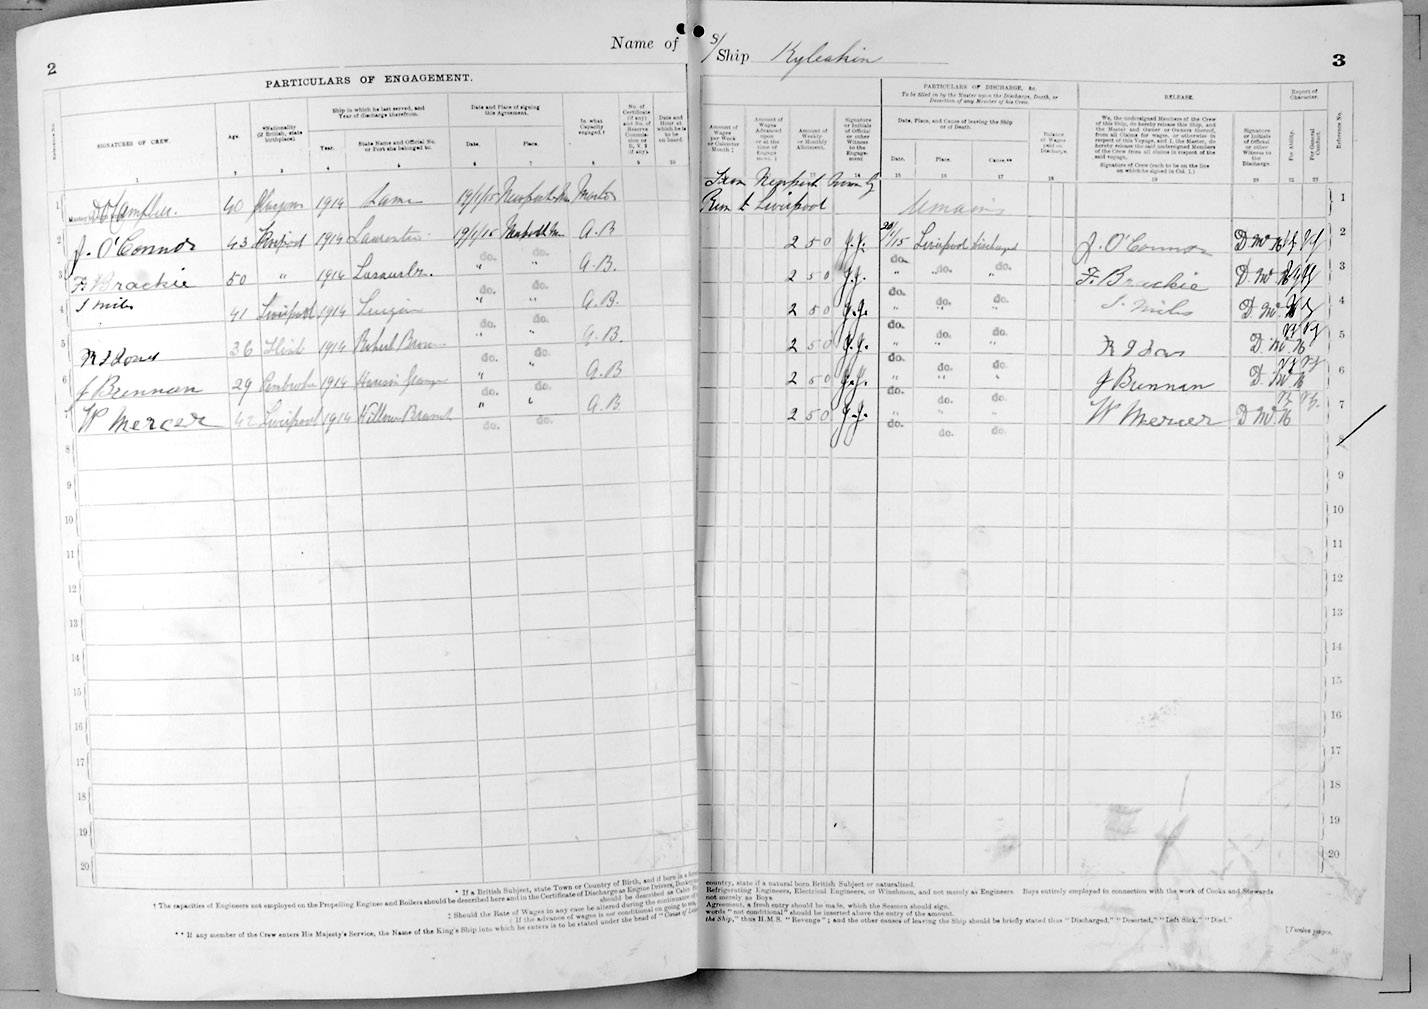 2
Name of
S/Ship Kyleakin
3
PARTICULARS OF ENGAGEMENT.
Reference No.
SIGNATURES OF CREW.
Age.
*Nationality
(If British, state birthplace).
Ship in which he last served, and
Year of discharge therefrom.
Year.
State Name and Official No.
or Port she belonged to.
Date and Place of signing
this Agreement.
Date.
Place.
In what
Capacity
engaged.†
No. of
Certificate
(if any)
and No. of
Reserve
Commis-
sion or
R. V. 2
(if any).
Date and
Hour at
which he is
to be
on board.
1 2 3 4 5 6 7 8 9 10
40 Glasgow 1914 Same 19/1/15 Master
2 J. O'Connor 43 Liverpool 1914 Laurentic 19/1/15 A.B.
3 F. Brackie 50 " 1914 do. " do. " A.B.
4 S Miles 41 Liverpool 1914 do. " do. " A.B.
5 36 1914 Robert Brown do. " do. " A.B.
6 J Brennan 29 Pembroke 1914 do. " do. " A.B
7 W Mercer 42 Liverpool 1914 Willow Branch do. " do. A.B
8
9
10
11
12
13
14
15
16
17
18
19
20
PARTICULARS OF DISCHARGE, &c.
To be filled in by the Master upon the Discharge, Death, or
Desertion of any Member of his Crew.
RELEASE.
Report of
Character.
Amount of
Wages
per Week
or Calendar
Month ‡
Amount of
Wages
Advanced
upon
or at the
time of
Engage-
ment. §
Amount of
Weekly
or Monthly
Allotment.
Signature
or Initials
of Official
or other
Witness
to the
Engage-
ment
Date, Place, and Cause of leaving the Ship
or of Death.
Date.
Place.
Cause.**
Balance
of Wages
paid on
Discharge.
We, the undersigned Members of the Crew
of this Ship, do hereby release this Ship, and
the Master and Owner or Owners thereof,
from all Claims for wages, or otherwise in
respect of this Voyage, and I, the Master, do
hereby release the said undersigned Members
of the Crew from all claims in respect of the
said voyage.
Signature of Crew (each to be on the line
on which he signed in Col. 1.)
Signature
or Initials
of Official
or other
Witness to
the
Discharge.
For Ability.
For General
Conduct.
Reference No.
13 14 15 16 17 18 19 20 21 22
From Newport
Run to Liverpool remains 1
2 5 0 J.J. 20/1/15 Liverpool discharged J. O'Connor D. McN 2
2 5 0 J.J. do. " do. " do. " F. Brackie D. McN 3
2 5 0 J.J. do. " do. " do. " S. Miles D. McN 4
2 5 0 J.J. do. " do. " do. " D. McN 5
2 5 0 J.J. do. " do. " do. " J Brennan D. McN 6
2 5 0 J.J. do. " do. " do. " W Mercer D. McN 7
do. do. do. 8
9
10
11
12
13
14
15
16
17
18
19
20
* If a British Subject, state Town or Country of Birth, and if born in a
country, state if a natural born British Subject or naturalized.
† The capacities of Engineers not employed on the Propelling Engines and Boilers should be described here and in the Certificate of Discharge as Engine Drivers,
Refrigerating Engineers, Electrical Engineers, or Winchmen, and not merely as Engineers. Boys entirely employed in connection with the work of Cooks and Stewards
should be described as Cabin
not merely as Boys.
‡ Should the Rate of Wages in any case be altered during the continuance of
Agreement, a fresh entry should be made, which the Seamen should sign.
§ If the advance of wages is not conditional on going to sea,
words "not conditional" should be inserted above the entry of the amount.
** If any member of the Crew enters His Majesty's Service, the Name of the King's Ship into which he enters is to be stated under the head of "Cause of
the Ship," thus H.M.S. "Revenge"; and the other causes of leaving the Ship should be briefly stated thus "Discharged," "Deserted," "Left Sick," "Died."
[Twelve pages.